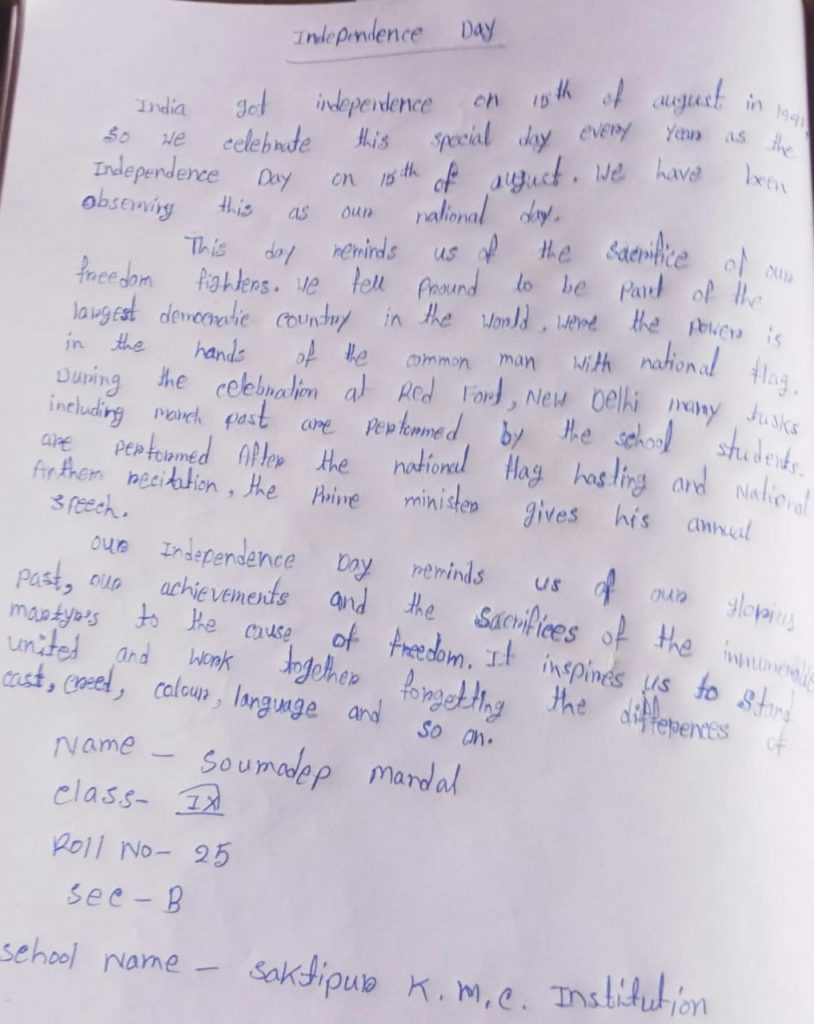 Independence Day
India got independence on 15th of august in 1947
so we celebrate this special day every year as the
Independence Day on 15th of august. We have been
observing this as our national day.
This day reminds us of the sacrifice of our
freedom fighters. We fell Pround to be part of the
largest democratic country in the world, were the power is
in the hands of the common man with national flag.
During the celebration at Red Fort, New Delhi many tusks
including march past are performed by the school students.
are performed After the national flag hasting and National
Anthem recitation, the Prime minister gives his annual
speech.
our Independence Day reminds us of our glorius
past, our achievements and the sacrifices of the innumerable
martyr's to the cause of freedom. It inspires us to stand
united and work together forgetting the differences of
cast, creed, colour, language and so on.
Name - Soumadep mandal
class- IX
Roll No- 25
sec - B
school Name - saktipur K.M.C. Institution